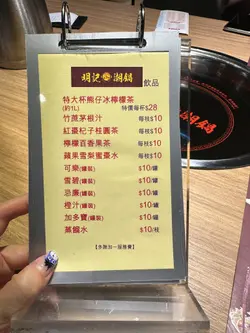 胡記潮鍋 飲品
特大杯熊仔冰檸檬茶
(約1L) 特價每杯$28
竹蔗茅根汁 每枝$10
紅棗杞子桂圓茶 每枝$10
檸檬百香果茶 每枝$10
蘋果雪梨蜜棗水 每枝$10
可樂(罐裝) $10/罐
雪碧(罐裝) $10/罐
忌廉(罐裝) $10/罐
橙汁(罐裝) $10/罐
加多寶(罐裝) $10/罐
蒸餾水 $10/枝
【多謝加一服務費】